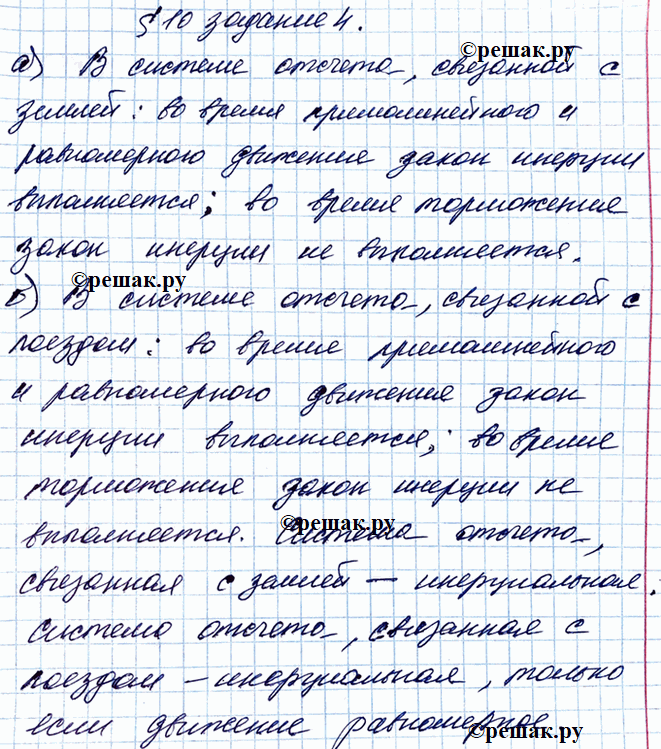 § 10 задание 4.
©решак.ру
а) В системе отсчета, связанной с
землей: во время прямолинейного и
равномерного движения закон инерции
выполняется; во время торможения
закон инерции не выполняется.
©решак.ру
б) В системе отсчета, связанной с
поездом: во время прямолинейного
и равномерного движения закон
инерции выполняется; во время
торможения закон инерции не
©решак.ру
выполняется. Система отсчета,
связанная с землей — инерциальная.
Система отсчета, связанная с
поездом — инерциальная, только
если движение равномерное
©решак.ру